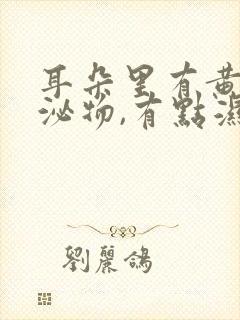 耳朵里有黄
泌物,有點濕
劉麗鴿